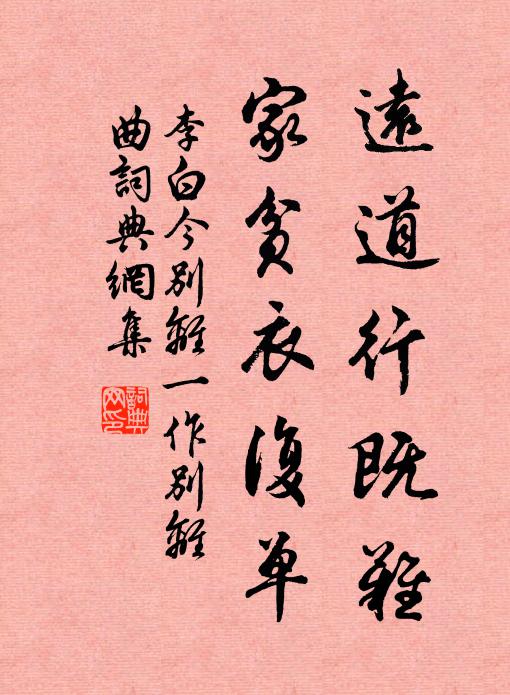 遠道行既難
家貧衣復單
李白今別離一作別離
曲詞典網集
詞典
网印